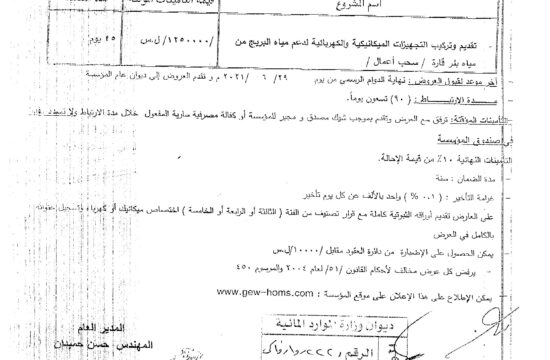 اسم المشروع
قيمة التأمينات المؤقتة
تقديم وتركيب التجهيزات الميكانيكية والكهربائية لدعم مياه البريج من
مياه بئر قارة / سحب أعمال /
/١٢٥٠٠٠٠/ ل.س
٤٥ يوم
آخر موعد لقبول العروض : نهاية الدوام الرسمي من يوم ٢٩ / ٦ / ٢٠٢١ م و تقدم العروض إلى ديوان عام المؤسسة
مــدة الارتبــاط : ( ٩٠ ) تسعون يوماً.
التأمينات المؤقتة: ترفق مع العرض وتقدم بموجب شيك مصدق و مجير للمؤسسة أو كفالة مصرفية سارية المفعول خلال مدة الارتباط ولا تسدد
في صندوق المؤسسة
التأمينات النهائية ١٠٪ من قيمة الإحالة.
مدة الضمان : سنة
غرامة التأخير : ( ٠.١ % ) واحد بالألف عن كل يوم تأخير
على العارض تقديم أوراقه الثبوتية كاملة مع قرار تصنيف من الفئة ( الثالثة أو الرابعة أو الخامسة ) اختصاص ميكانيك أو كهرباء وتسجيل
بالكامل في العرض
يمكن الحصول على الإضبارة من دائرة العقود مقابل /١٠٠٠٠/ل.س
- يرفض كل عرض مخالف لأحكام القانون /٥١/ لعام ٢٠٠٤ والمرسوم ٤٥٠
يمكن الإطلاع على هذا الإعلان على موقع المؤسسة : www.gew-homs.com
المدير العام
المهندس حسن حميدان
ديوان وزارة الموارد المائية
الرقم